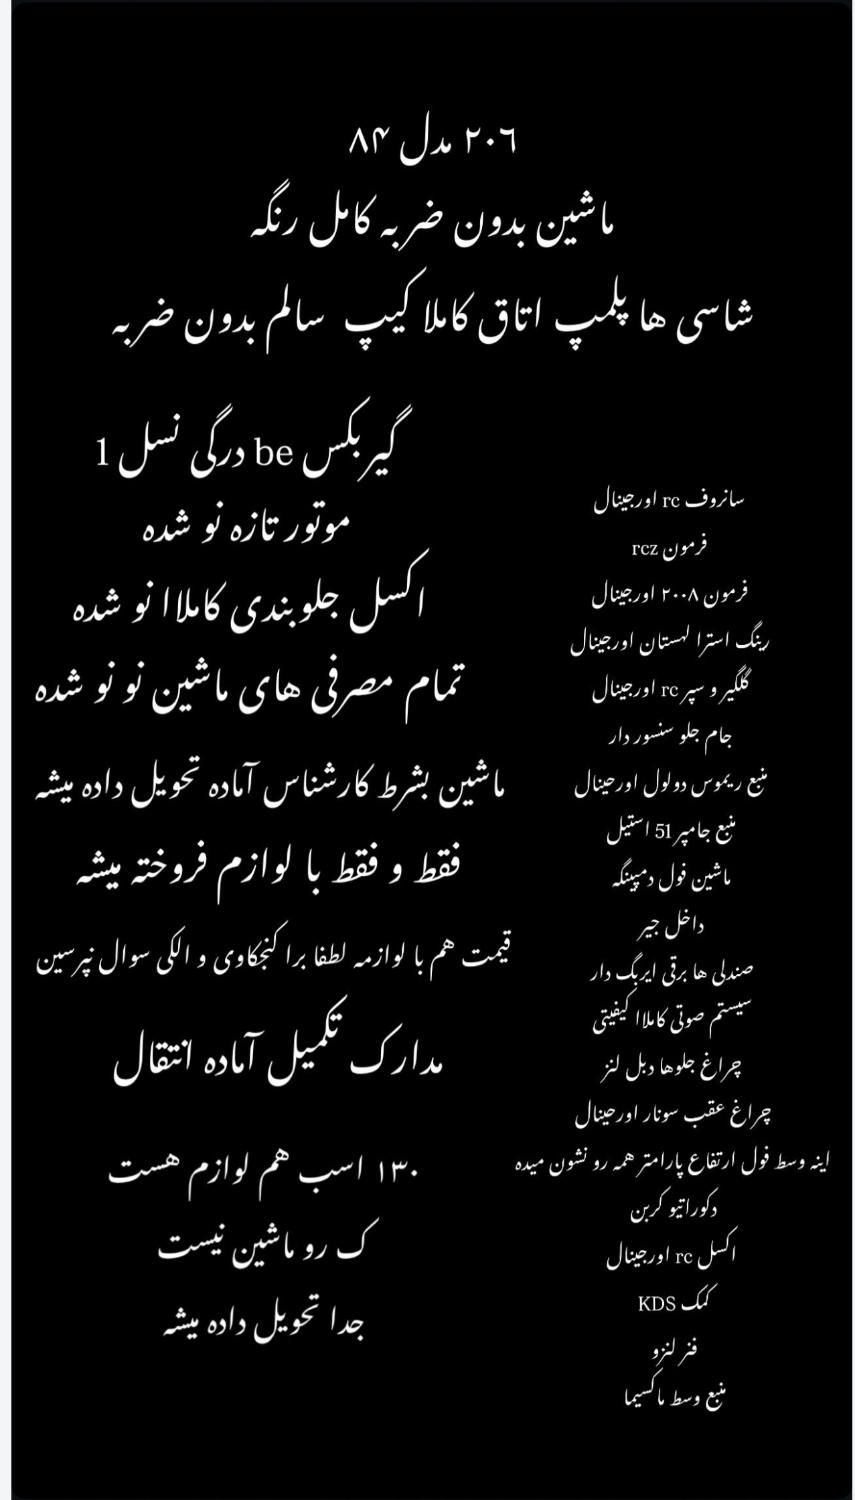 ۲۰۶ مدل ۸۴
ماشین بدون ضربه کامل رنگه
شاسی ها پلمپ اتاق کاملا کیپ سالم بدون ضربه
سانروف rc اورجینال
فرمون rcz
فرمون ۲۰۰۸ اورجینال
رینگ استرا لهستان اورجینال
گلگیر و سپر rc اورجینال
جام جلو سنسور دار
منبع ریموس دولول اورحینال
منبع جامپر 51 استیل
ماشین فول دمپینگه
داخل جیر
صندلی ها برقی ایربگ دار
سیستم صوتی کاملاا کیفیتی
چراغ جلوها دبل لنز
چراغ عقب سونار اورحینال
اینه وسط فول ارتفاع پارامتر همه رو نشون میده
دکوراتیو کربن
اکسل rc اورجینال
کمک KDS
فنر لنزو
منبع وسط ماکسیما
گیربکس be درگی نسل 1
موتور تازه نو شده
اکسل جلوبندی کاملاا نو شده
تمام مصرفی های ماشین نو نو شده
ماشین بشرط کارشناس آماده تحویل داده میشه
فقط و فقط با لوازم فروخته میشه
قیمت هم با لوازمه لطفا برا کنجکاوی و الکی سوال نپرسین
مدارک تکمیل آماده انتقال
۱۳۰ اسب هم لوازم هست
ک رو ماشین نیست
جدا تحویل داده میشه